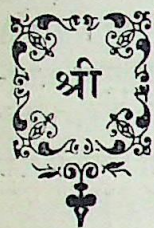 श्री